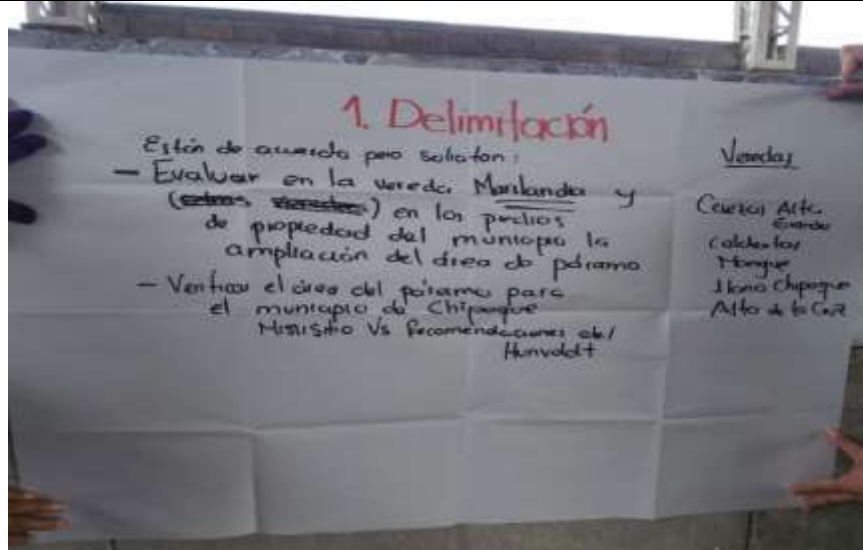 1. Delimitación
Están de acuerdo pero solicitan:
- Evaluar en la vereda Marilandia y
(otras veredas) en los predios
de propiedad del municipio la
ampliación del área de páramo
- Verificar el área del páramo para
el municipio de Chipaque
Vs Recomendaciones del
Hunvoldt
Veredas
Alto
Caldentas
Mongue
Llano Chipaque
Alto de la Cruz